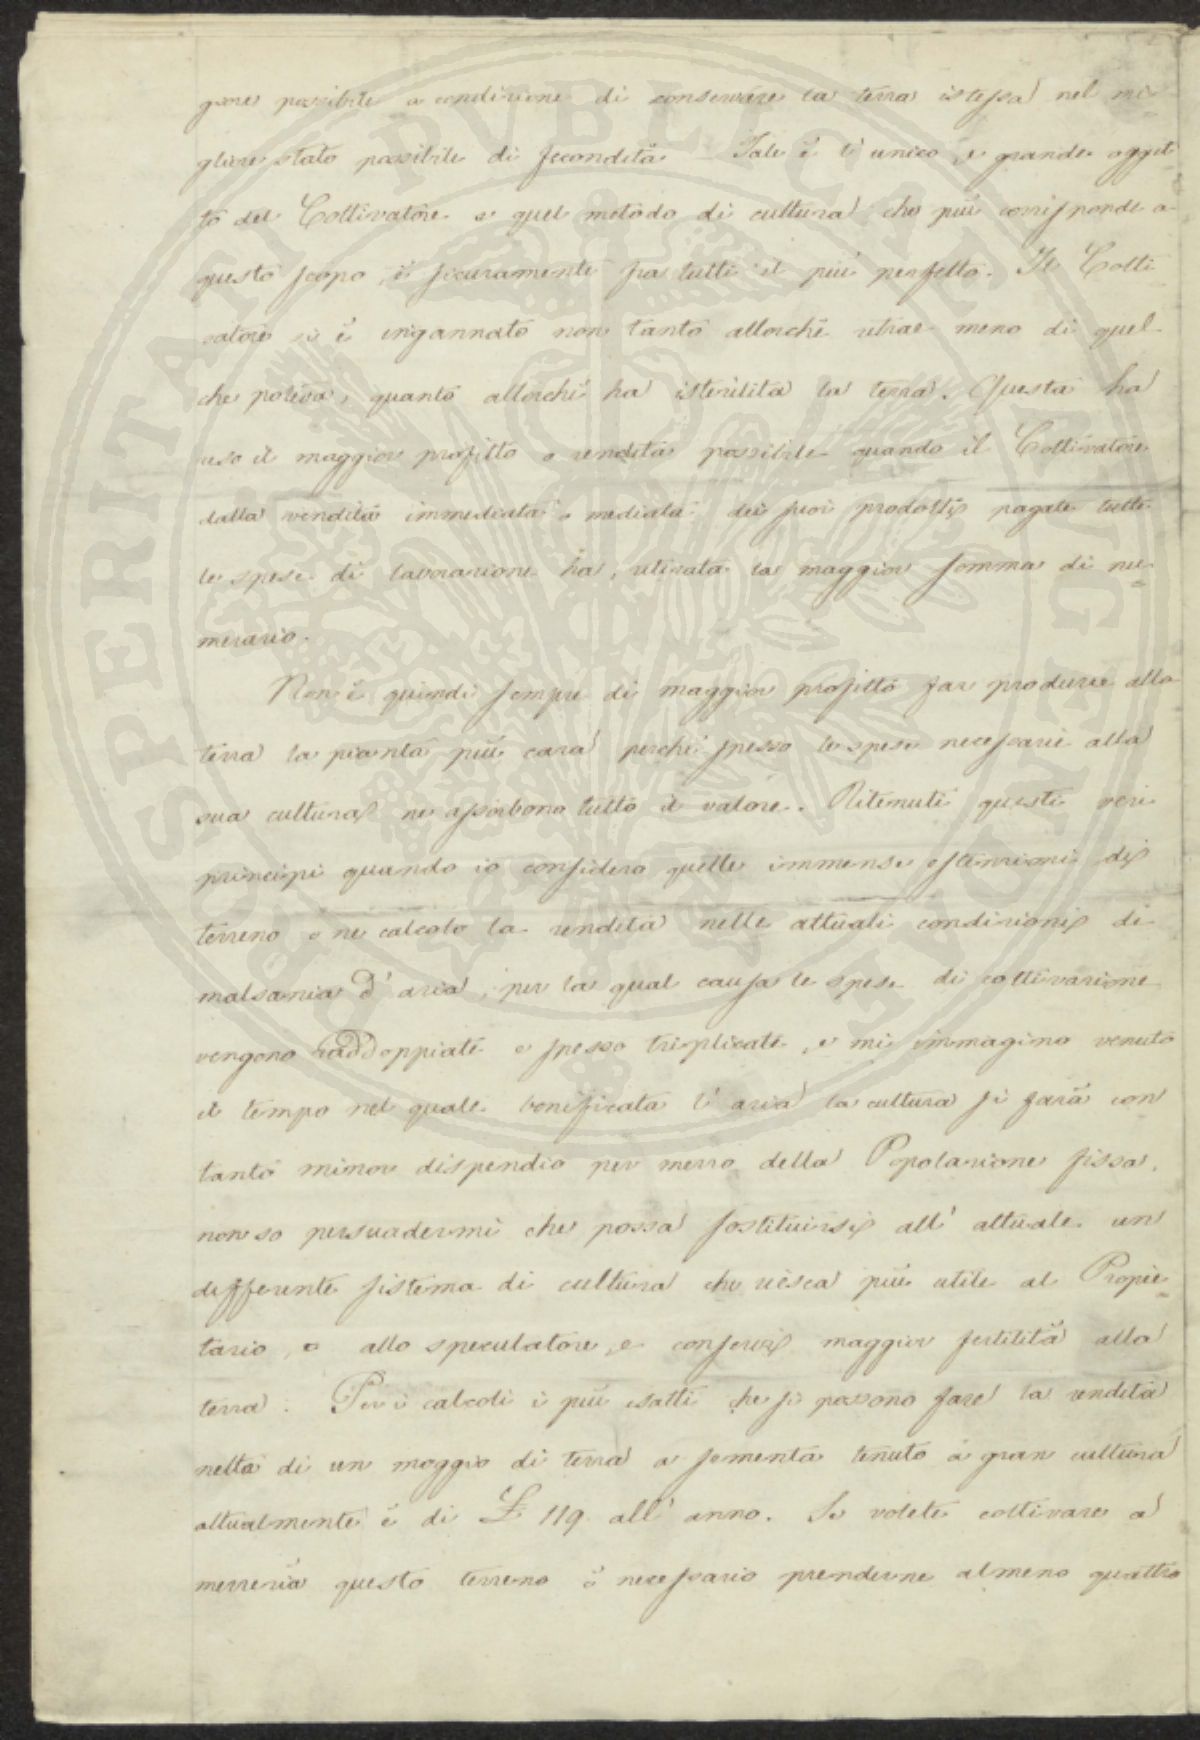 giore possibile a condizione di conservare la terra istessa nel mi-
gliore stato possibile di fecondità. Tale è l'unico, e grande ogget-
to del Coltivatore e quel metodo di cultura che più corrisponde a
questo scopo, è sicuramente fra tutti il più perfetto. Il Colti
vatore si è ingannato non tanto allorchè ritrae meno di quel
che poteva, quanto allorchè ha isterilita la terra. Questa ha
reso il maggior profitto o rendita possibile quando il Coltivatore
dalla vendita immediata o mediata dei suoi prodotti, pagate tutte
le spese di lavorazione ha, ritirata la maggior somma di nu-
merario.
Non è quindi sempre di maggior profitto far produrre alla
terra la pianta più cara perchè spesso le spese necessarie alla
sua cultura ne assorbono tutto il valore. Ritenuti questi veri
principi quando io considero quelle immense estenzioni di
terreno e ne calcolo la rendita nelle attuali condizioni di
malsania d'aria, per la qual causa le spese di coltivazione
vengono raddoppiate e spesso triplicate, e mi immagino venuto
il tempo nel quale bonificata l'aria la cultura si farà con
tanto minor dispendio per mezzo della Popolazione fissa,
non so persuadermi che possa sostituirsi all'attuale un
differente sistema di cultura che riesca più utile al Proprie-
tario, o allo speculatore, e conservi maggior fertilità alla
terra. Per i calcoli i più esatti che si possono fare la rendita
netta di un moggio di terra a sementa tenuto a gran cultura
attualmente è di £ 119 all'anno. Se volete coltivare a
mezzeria questo terreno è necessario prenderne almeno quattro
PROSPERITATI PVBLICAE AVGENDAE